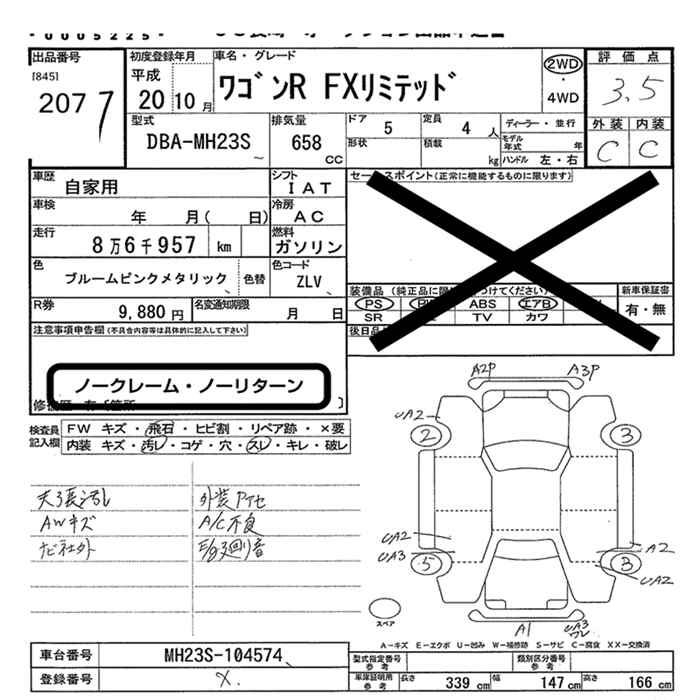 00052254
出品番号
[845]
2077
初度登録年月
平成
20 10 月
車名・グレード
ワゴンR FXリミテッド
2WD
・
4WD
評価点
3.5
外装 内装
C C
型式
DBA-MH23S
排気量
658
CC
ドア 5
定員 4 人
形状
積載 kg
ディーラー・並行
モデル年式 年
ハンドル 左・右
車歴 自家用
シフト IAT
車検 年 月( 日)
冷房 AC
走行 8万6千957 km
燃料 ガソリン
色 ブルームピンクメタリック
色替
色コード ZLV
R券 9,880 円
名変通知期限 月 日
セールスポイント(正常に機能するものに限ります)
装備品 (純正品に限
つけてください)
PS ABS エアB
SR TV カワ
新車保証書
有・無
後日品
注意事項申告欄(不具合内容等は具体的に記入して下さい)
ノークレーム・ノーリターン
検査員記入欄
FW キズ・飛石・ヒビ割・リペア跡・×要
内装 キズ・汚レ・コゲ・穴・スレ・キレ・破レ
天張汚れ
AWキズ
ナビ社外
外装Pキセ
A/C不良
E/g廻り音
A2P A3P
UA2
2 3
UA2
UA3
5 3
A2
UA2
スペア
A1 UA3
ワレ
A-キズ E-エクボ U-凹み W-補修跡 S-サビ C-腐食 XX-交換済
車台番号 MH23S-104574
登録番号 X.
型式指定番号 参考
類別区分番号 参考
車庫証明用 参考
長さ 339 cm
幅 147 cm
高さ 166 cm